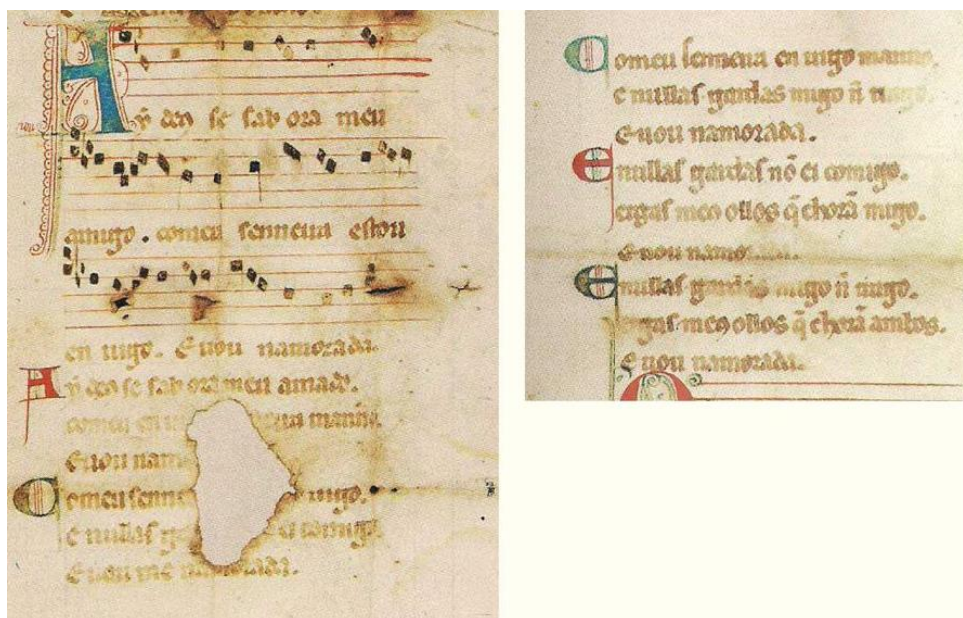 Ay deo se sab ora meu
amigo. comeu senneira estou
en uigo. E uou namorada.
Ay deo se sab ora meu amado.
comeu en manno.
E uou nam
Comeu senne uigo.
e nullas ei comigo.
E uou me namorada.
Comeu senneira en uigo manno.
e nullas gardas migo ñ trago.
E uou namorada.
E nullas gardas nõ ei comigo.
ergas meo ollos q̃ chorã migo.
E uou namo
E nullas gardas migo ñ trago.
ergas meo ollos q̃ chorã ambos.
E uou namorada.